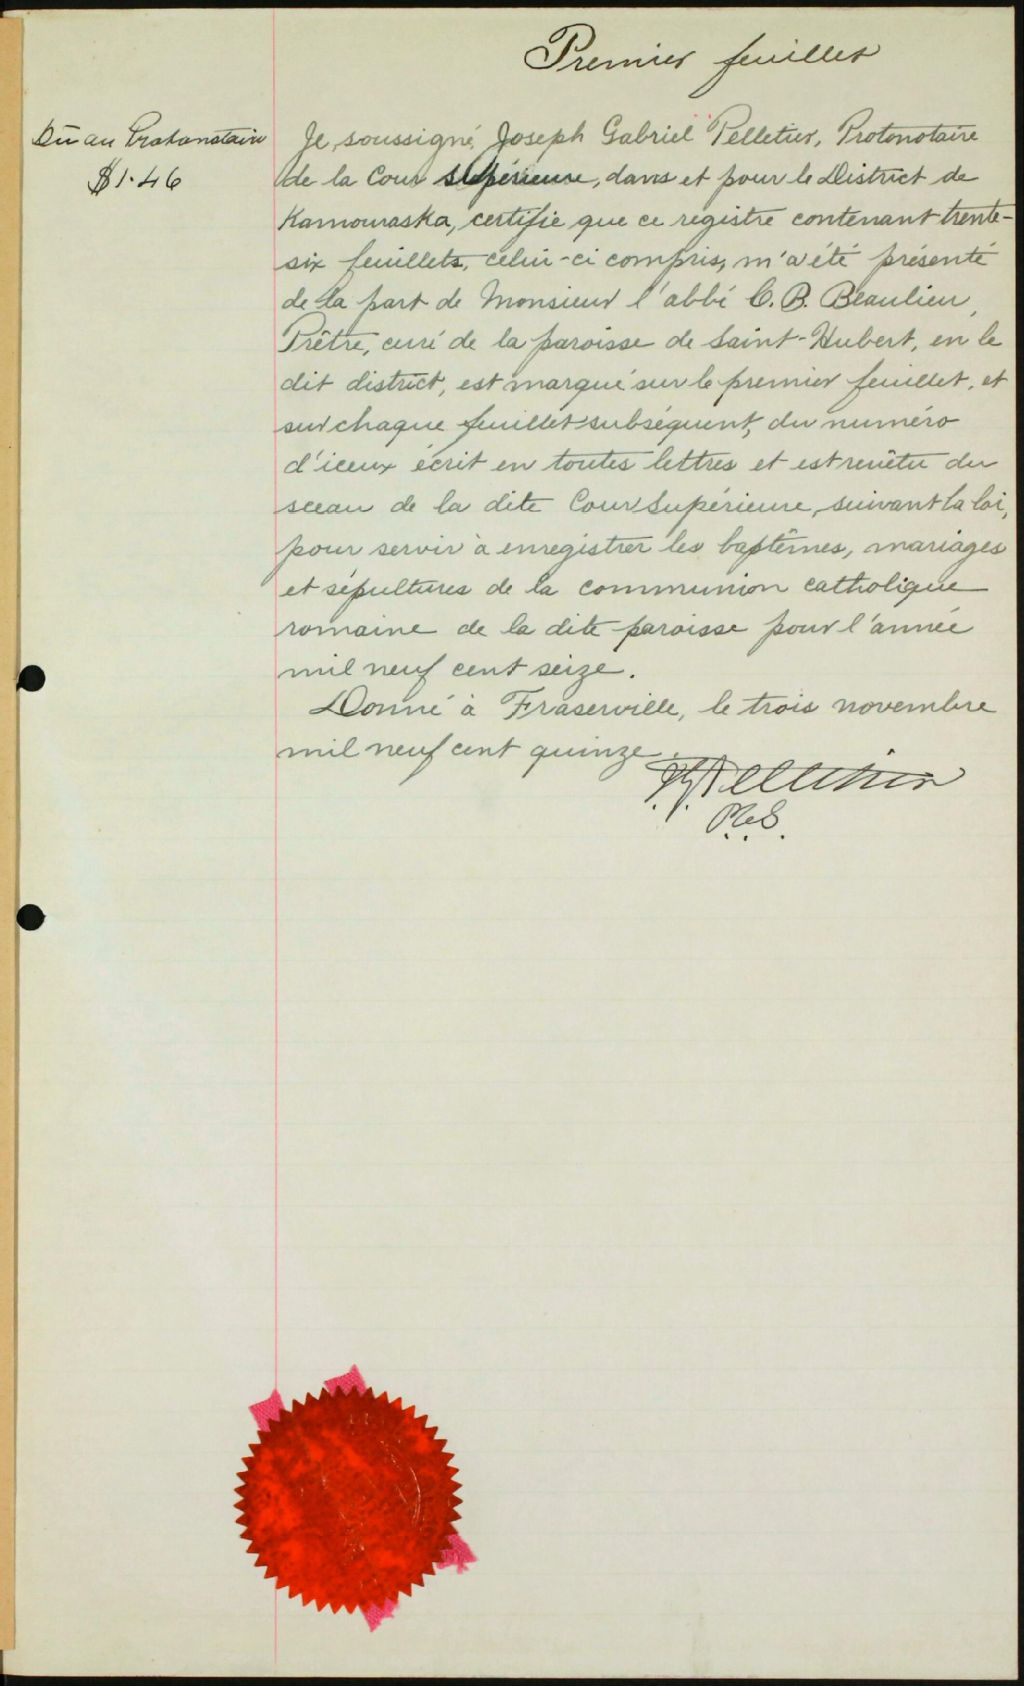 Premier feuillet
Dû au Protonotaire
$1.46
Je, soussigné, Joseph Gabriel Pelletier, Protonotaire
de la Cour Supérieure, dans et pour le District de
Kamouraska, certifie que ce registre contenant trente-
six feuillets, celui-ci compris, m'a été présenté
de la part de Monsieur l'abbé C. B. Beaulieu,
Prêtre, curé de la paroisse de Saint-Hubert, en le
dit district, est marqué sur le premier feuillet, et
sur chaque feuillet subséquent, du numéro
d'iceux écrit en toutes lettres et est revêtu du
sceau de la dite Cour Supérieure, suivant la loi,
pour servir à enregistrer les baptêmes, mariages
et sépultures de la communion catholique
romaine de la dite paroisse pour l'année
mil neuf cent seize.
Donné à Fraserville, le trois novembre
mil neuf cent quinze.
Pelletier
P.C.S.